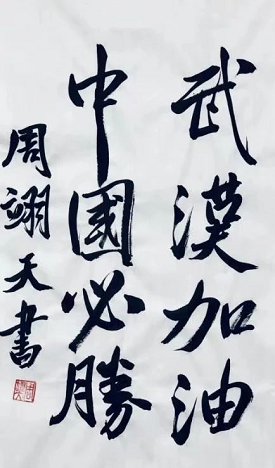 武漢加油
中國必勝
周翊天書